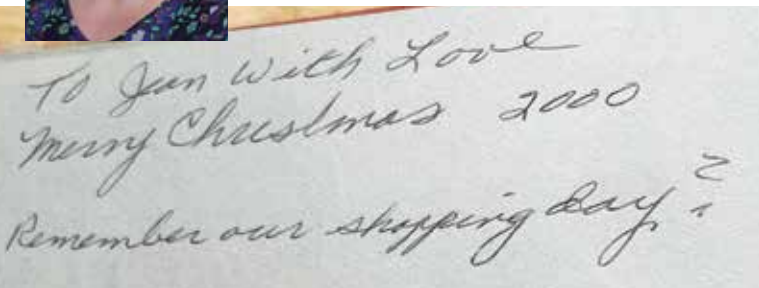 To Jean With Love
Merry Christmas 2000
Remember our shopping day?